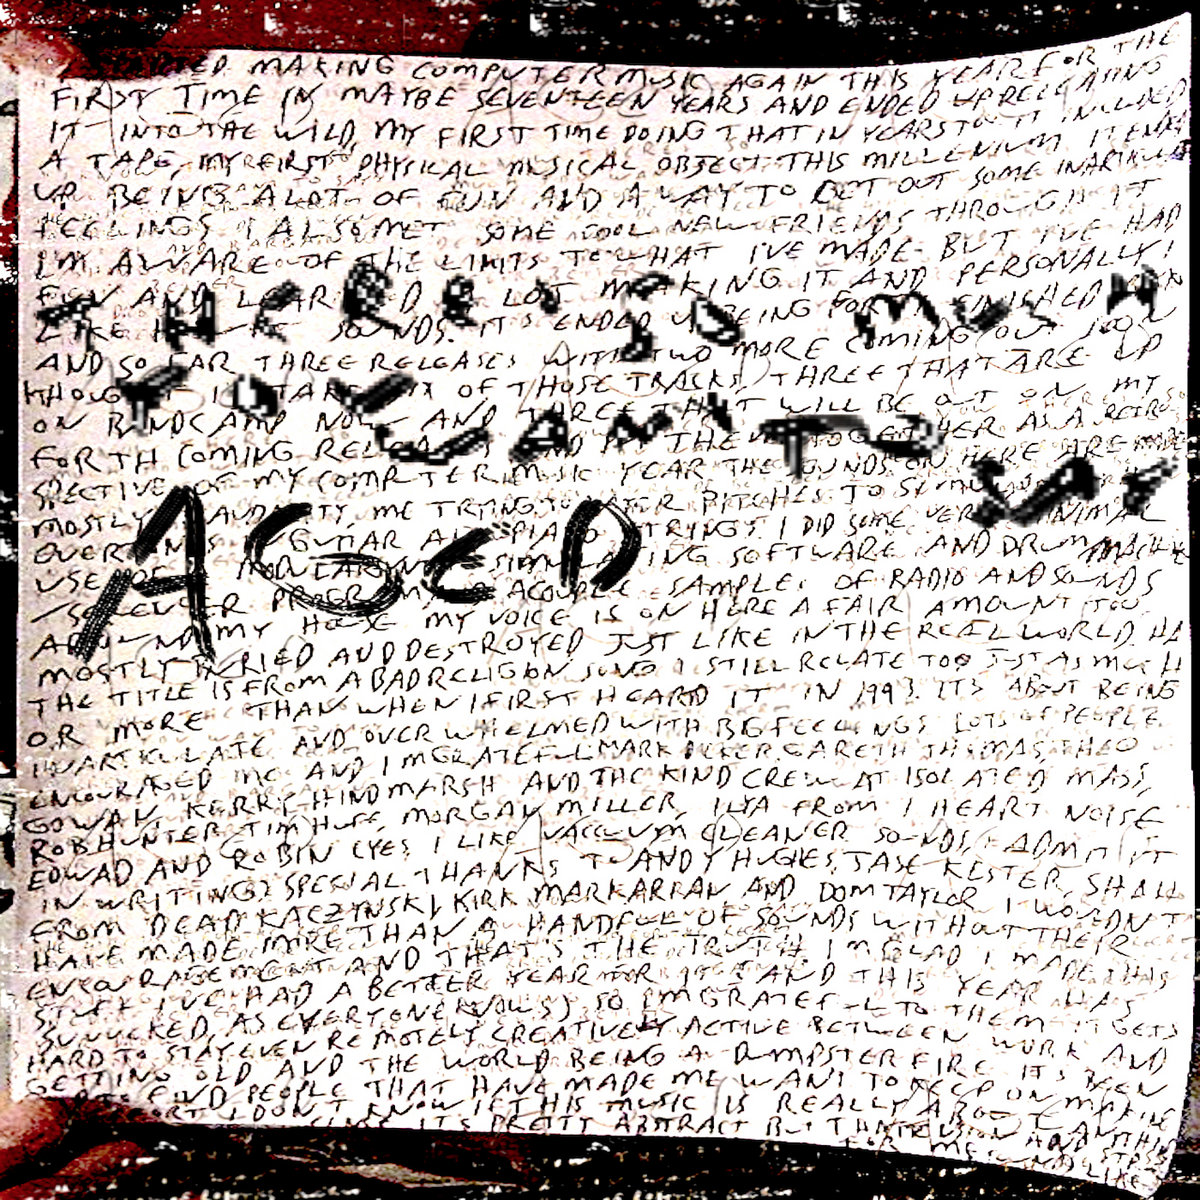 STARTED MAKING COMPUTER MUSIC AGAIN THIS YEAR FOR THE
FIRST TIME IN MAYBE SEVENTEEN YEARS AND ENDED UP RELEASING
IT INTO THE WILD, MY FIRST TIME DOING THAT IN YEARS TOO IT INCLUDED
A TAPE, MY FIRST PHYSICAL MUSICAL OBJECT THIS MILLENIUM. IT ENDED
UP BEING A LOT OF FUN AND A WAY TO GET OUT SOME
FEELINGS. I ALSO MET SOME COOL NEW FRIENDS THROUGH IT
I'M AWARE OF THE LIMITS TO WHAT I'VE MADE. BUT I'VE HAD
FUN AND LEARNED A LOT MAKING IT AND PERSONALLY I
THERE'S SO MUCH
LIKE HOW IT SOUNDS. IT'S ENDED UP BEING FOR FINISHED
AND SO FAR THREE RELEASES WITH TWO MORE COMING OUT SOON
YOU WANT TO SAY
THOUGH I TAKE SIX OF THOSE TRACKS, THREE THAT ARE UP
ON BANDCAMP NOW AND THREE THAT WILL BE OUT ON MY
FORTH COMING RELEASES AND PUT THEM TOGETHER AS A RETRO
SPECTIVE OF MY COMPUTER MUSIC YEAR THE SOUNDS ON HERE ARE MADE
AGED
MOSTLY AUDACITY, ME TRYING TO ALTER PITCHES TO
OVERTONES GUITAR AND PIANO STRINGS. I DID SOME VERY MINIMAL
USE OF MODULAR SYNTH SIMULATING SOFTWARE AND DRUM MACHINE
/SEQUENCER PROGRAM, A COUPLE SAMPLES OF RADIO AND SOUNDS
AROUND MY HOUSE MY VOICE IS ON HERE A FAIR AMOUNT TOO,
MOSTLY BURIED AND DESTROYED JUST LIKE IN THE REAL WORLD HA
THE TITLE IS FROM A BAD RELIGION SONG I STILL RELATE TOO JUST AS MUCH
OR MORE THAN WHEN I FIRST HEARD IT IN 1993. IT'S ABOUT BEING
INARTICULATE AND OVERWHELMED WITH BIG FEELINGS LOTS OF PEOPLE
ENCOURAGED ME AND I'M GRATEFUL MARK GARETH THOMAS, THEO
GOWAN, KERRY HINDMARSH AND THE KIND CREW AT ISOLATED MASS,
ROB HUNTER TIM HUFF, MORGAN MILLER, ILYA FROM I HEART NOISE
EDWAD AND ROBIN (YES I LIKE VACCUUM CLEANER SOUNDS, I ADMIT IT
IN WRITING) SPECIAL THANKS TO ANDY HUGHES, JASE KESTER, SHAUN
FROM DEAD KACZYNSKI, KIRK MARKARRAN AND DOM TAYLOR I WOULDN'T
HAVE MADE MORE THAN A HANDFUL OF SOUNDS WITHOUT THEIR
ENCOURAGEMENT AND THAT'S THE TRUTH. I'M GLAD I MADE THIS
STUFF I'VE HAD A BETTER YEAR FOR IT AND THIS YEAR HAS
SUUUCKED, AS EVERYONE KNOWS) SO I'M GRATEFUL TO THEM IT GETS
HARD TO STAY EVEN REMOTELY CREATIVELY ACTIVE BETWEEN WORK AND
GETTING OLD AND THE WORLD BEING A DUMPSTER FIRE IT'S BEEN
FIND PEOPLE THAT HAVE MADE ME WANT TO KEEP ON MAKING
I DON'T KNOW IF THIS MUSIC IS REALLY ABOUT ANYTHING
IT'S PRETTY ABSTRACT BUT
FOR ME LIKE